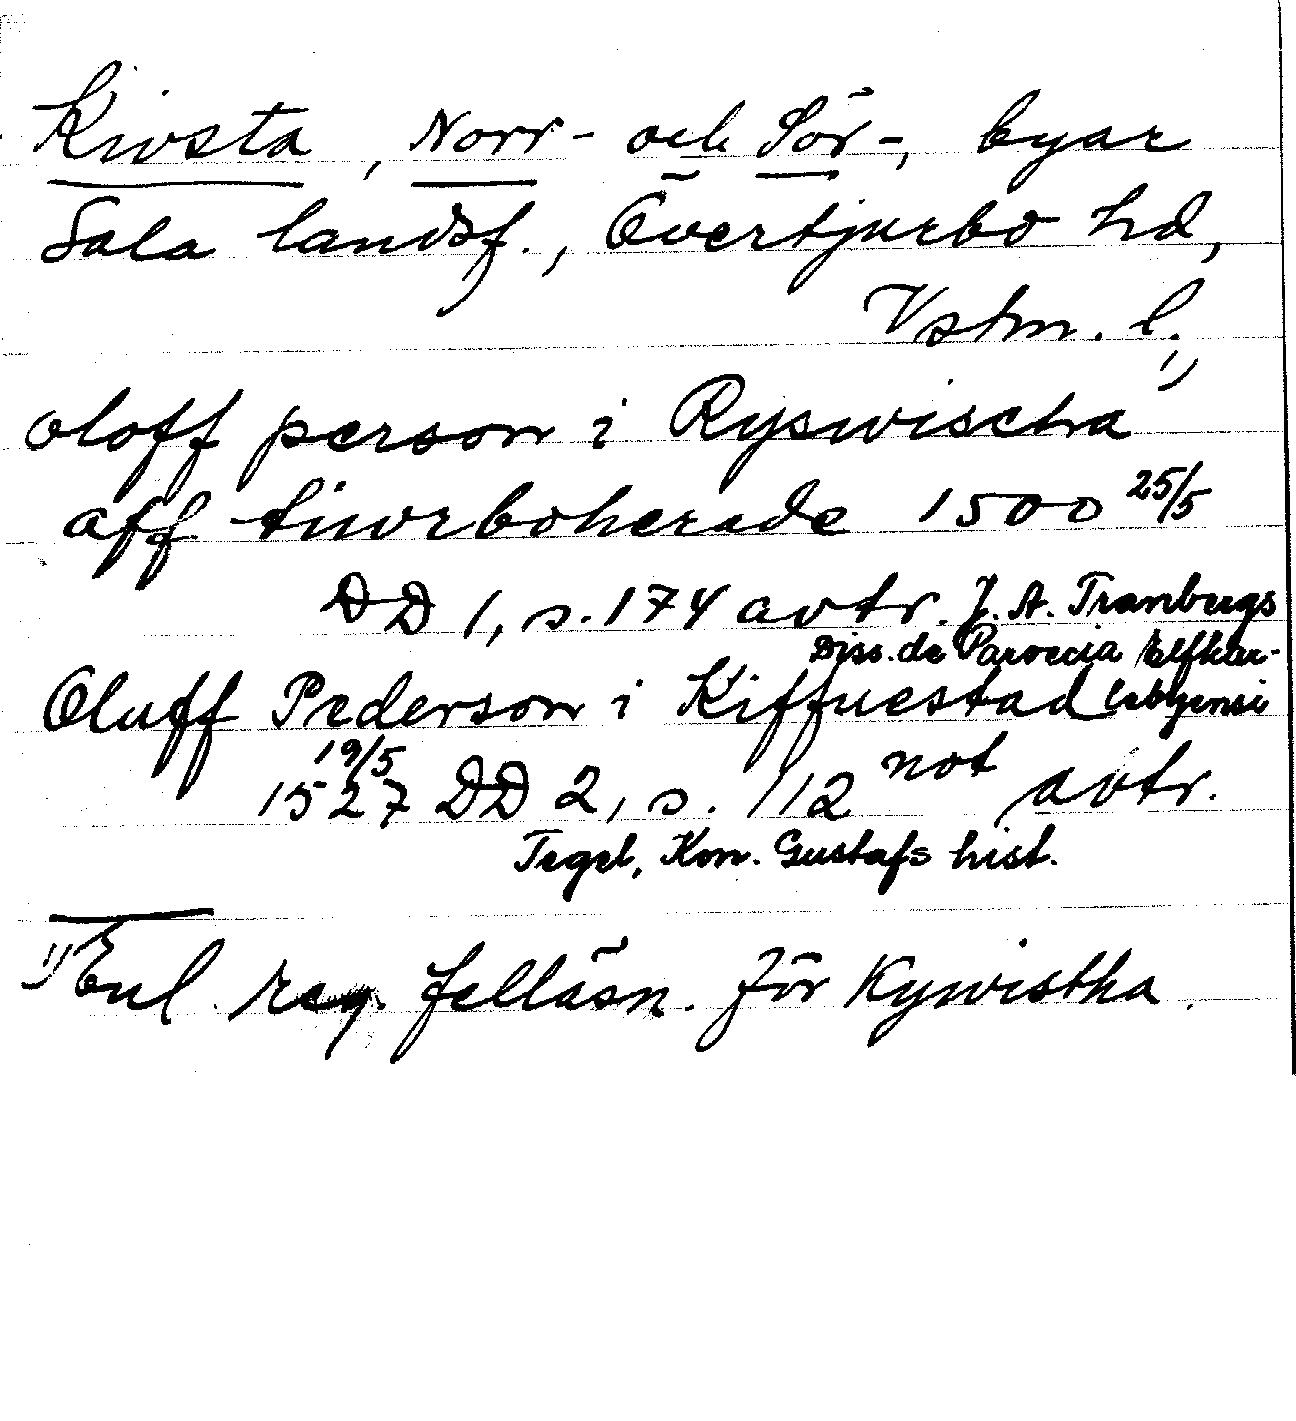 Kivsta, Norr- och Sör-, byar
Sala landsf., Övertjurbo hd,
Vstm. l.
oloff person i Ryswischa 1)
aff tiwrboherade 1500 25/5
DD 1, s. 174 avtr. J. A. Tranbergs
Diss. de Paroecia Elfkar-
Oluff Pederson i Kiffuestad lebyensi
19/5
1527 DD 2, s. 112 not avtr.
Tegel, Kon. Gustafs hist.
1) Enl. reg. felläsn. för Kywistha.